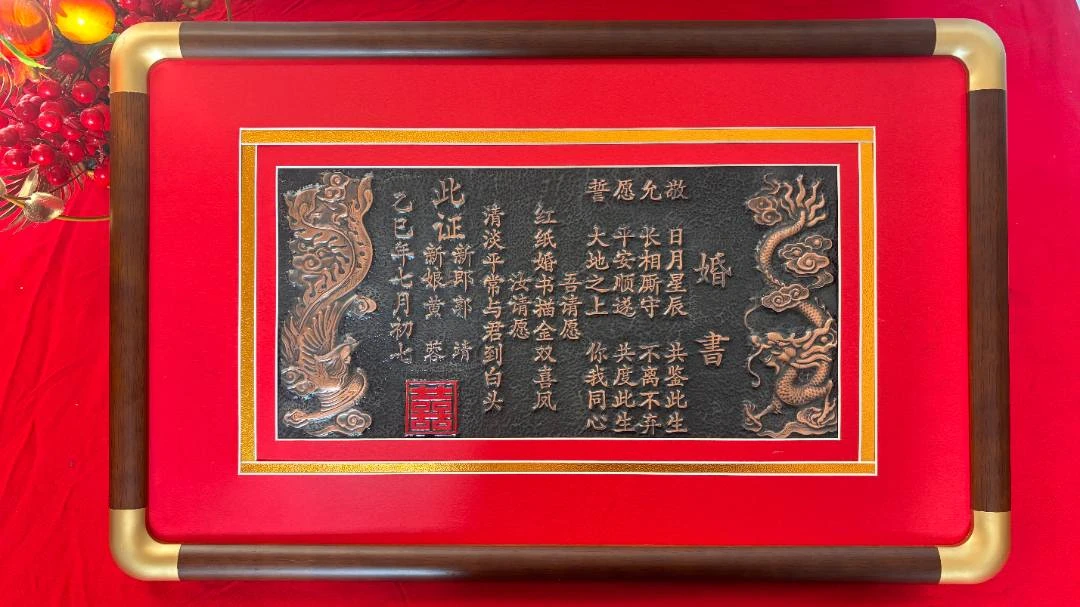 婚書
敬 日月星辰 共鉴此生
允 长相厮守 不离不弃
愿 平安顺遂 共度此生
誓 大地之上 你我同心
吾请愿
红纸婚书描金双喜凤
汝请愿
清淡平常与君到白头
此证
新郎郭 靖
新娘黄 蓉
乙巳年七月初七
囍